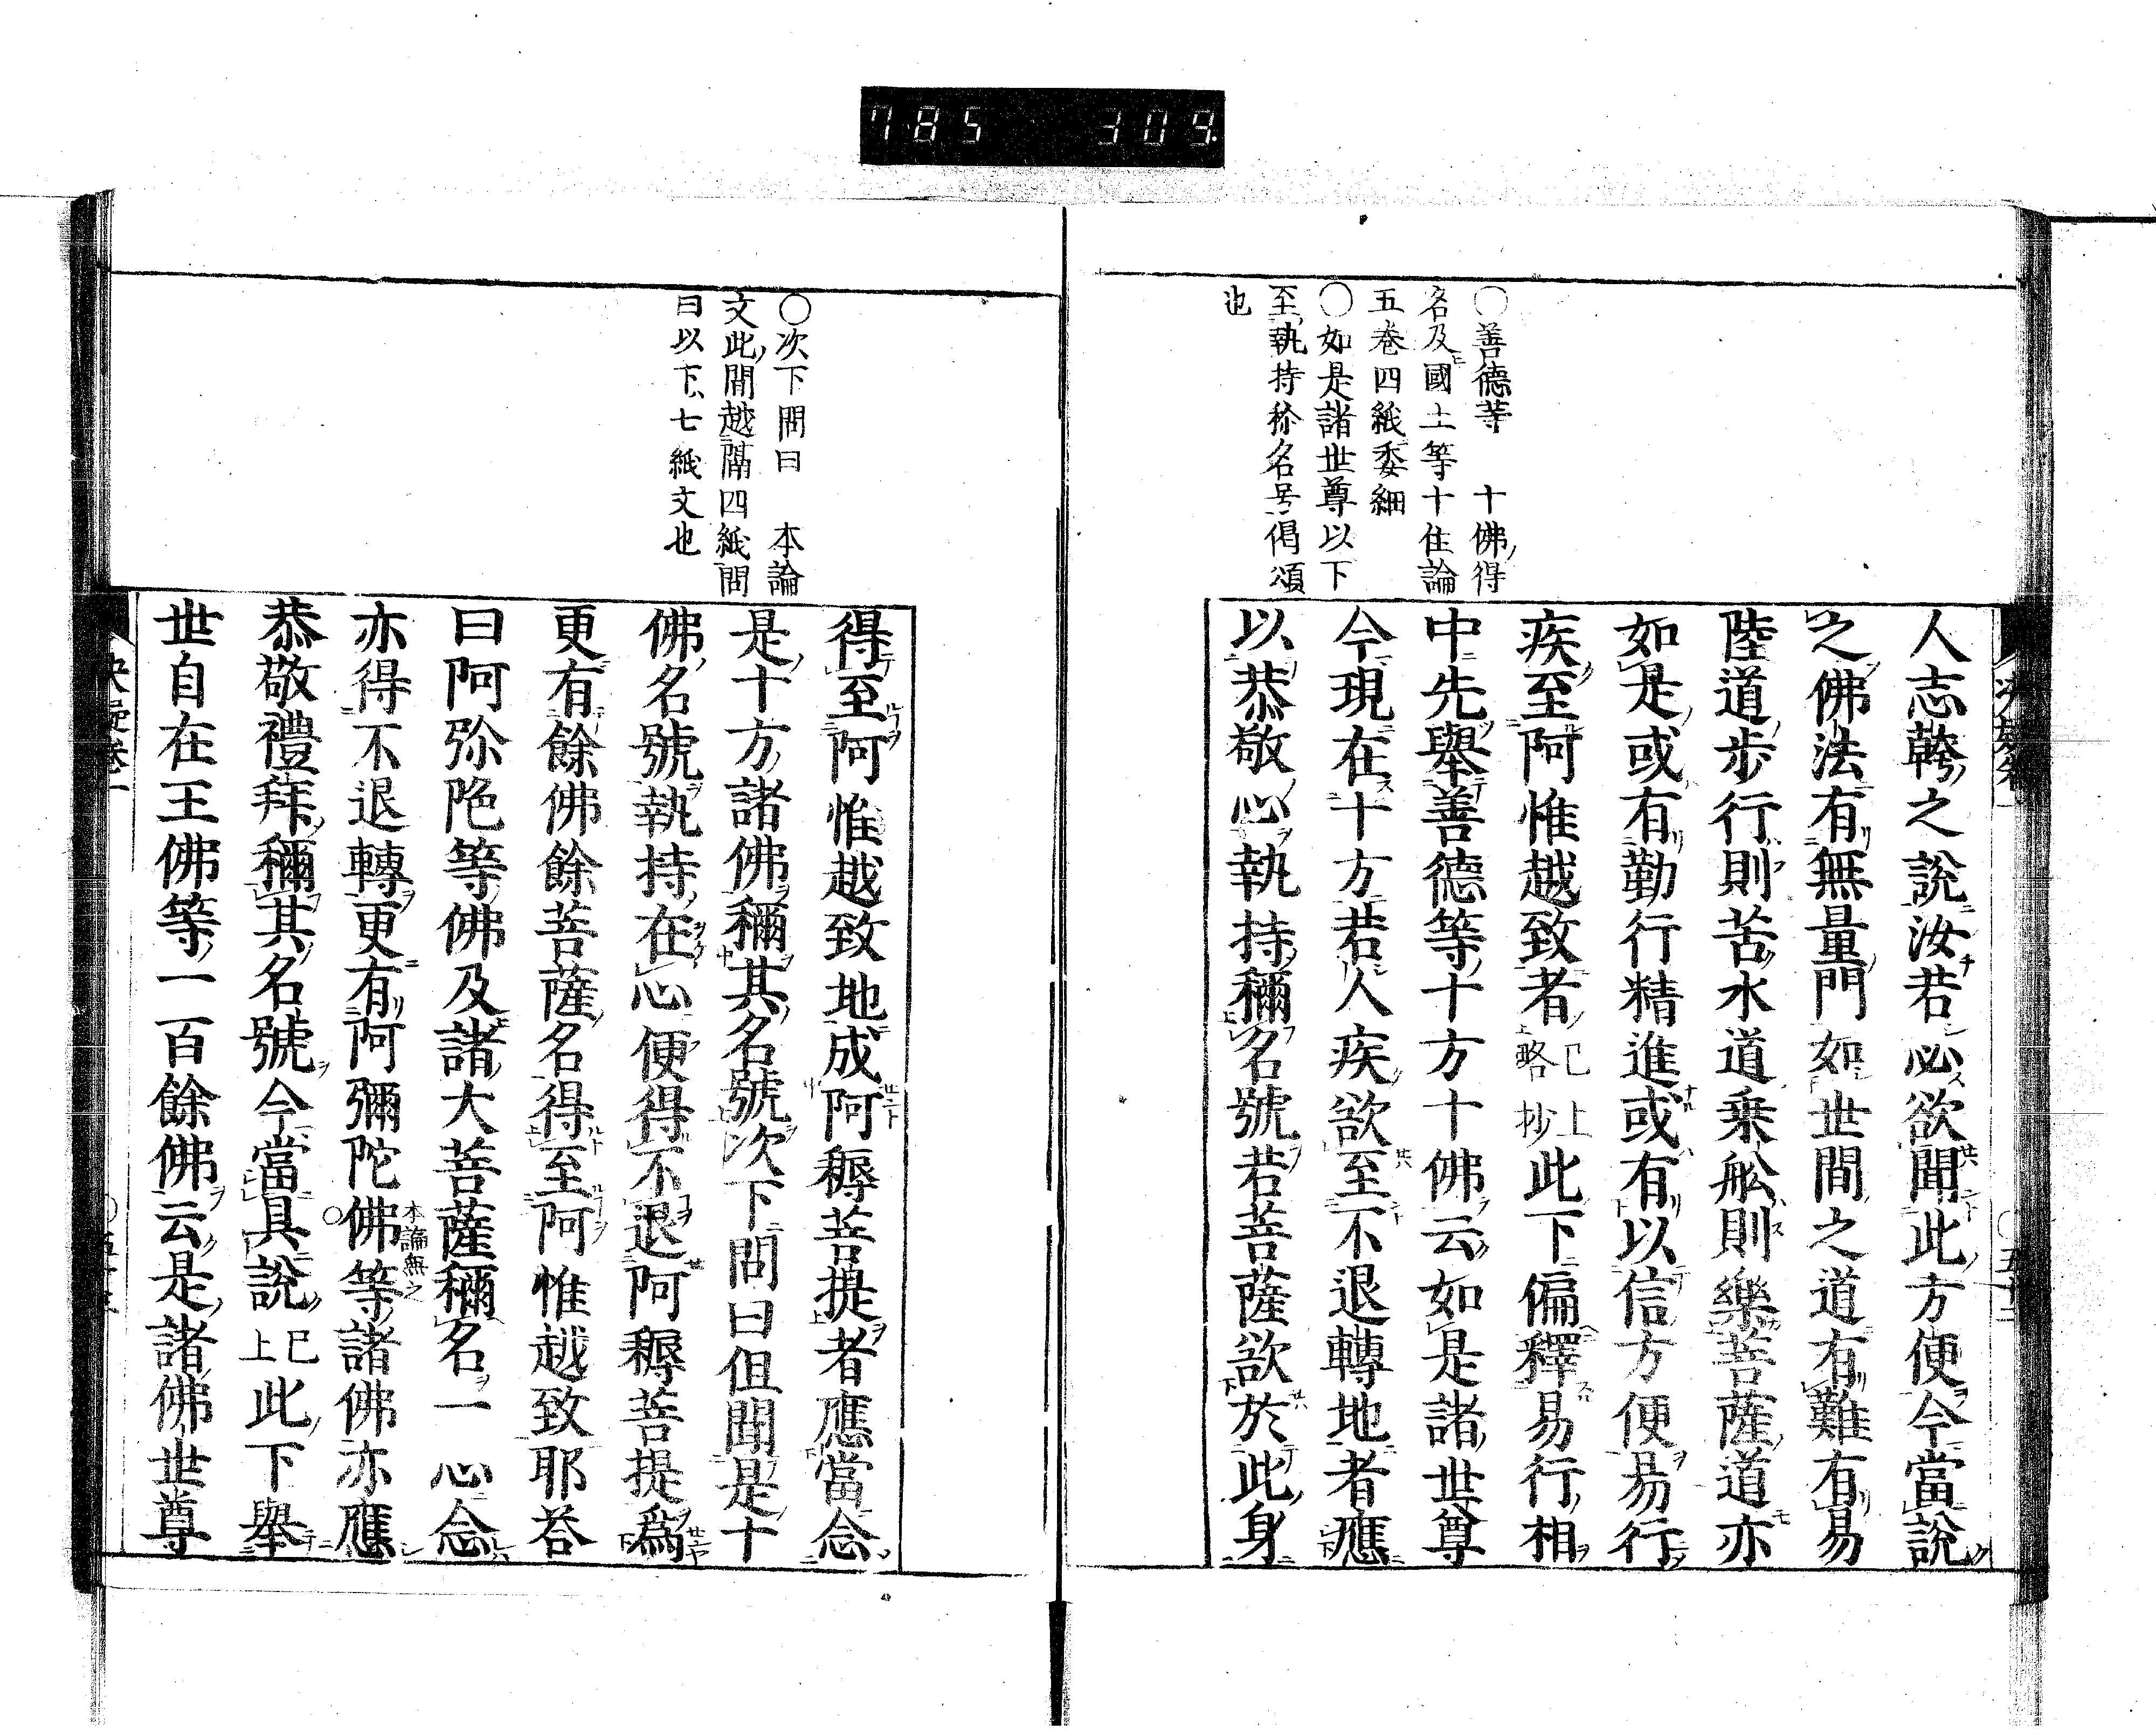 785 309
〇善德等 十佛得
名及國土等十住論
五卷四紙委細
〇如是諸世尊以下
至執持称名号偈頌
也
人志幹之說汝若必欲聞此方便今當說
之佛法有無量門如世間之道有難有易
陸道步行則苦水道乗舩則樂菩薩道亦
如是或有勤行精進或有以信方便易行
疾至阿惟越致者已上略抄此下偏釋易行相
中先舉善德等十方十佛云如是諸世尊
今現在十方若人疾欲至不退轉地者應
以恭敬心執持稱名號若菩薩欲於此身
〇次下問曰 本論
文此間越隔四紙問
曰以下七紙文也
得至阿惟越致地成阿耨菩提者應當念
是十方諸佛稱其名號次下問曰但聞是十
佛名號執持在心便得不退阿耨菩提爲
更有餘佛餘菩薩名得至阿惟越致耶荅
曰阿弥陁等佛及諸大菩薩稱名一心念
亦得不退轉更有阿彌陀佛等諸佛亦應
本論無之
恭敬禮拜稱其名號今當具說已上此下舉
世自在王佛等一百餘佛云是諸佛世尊